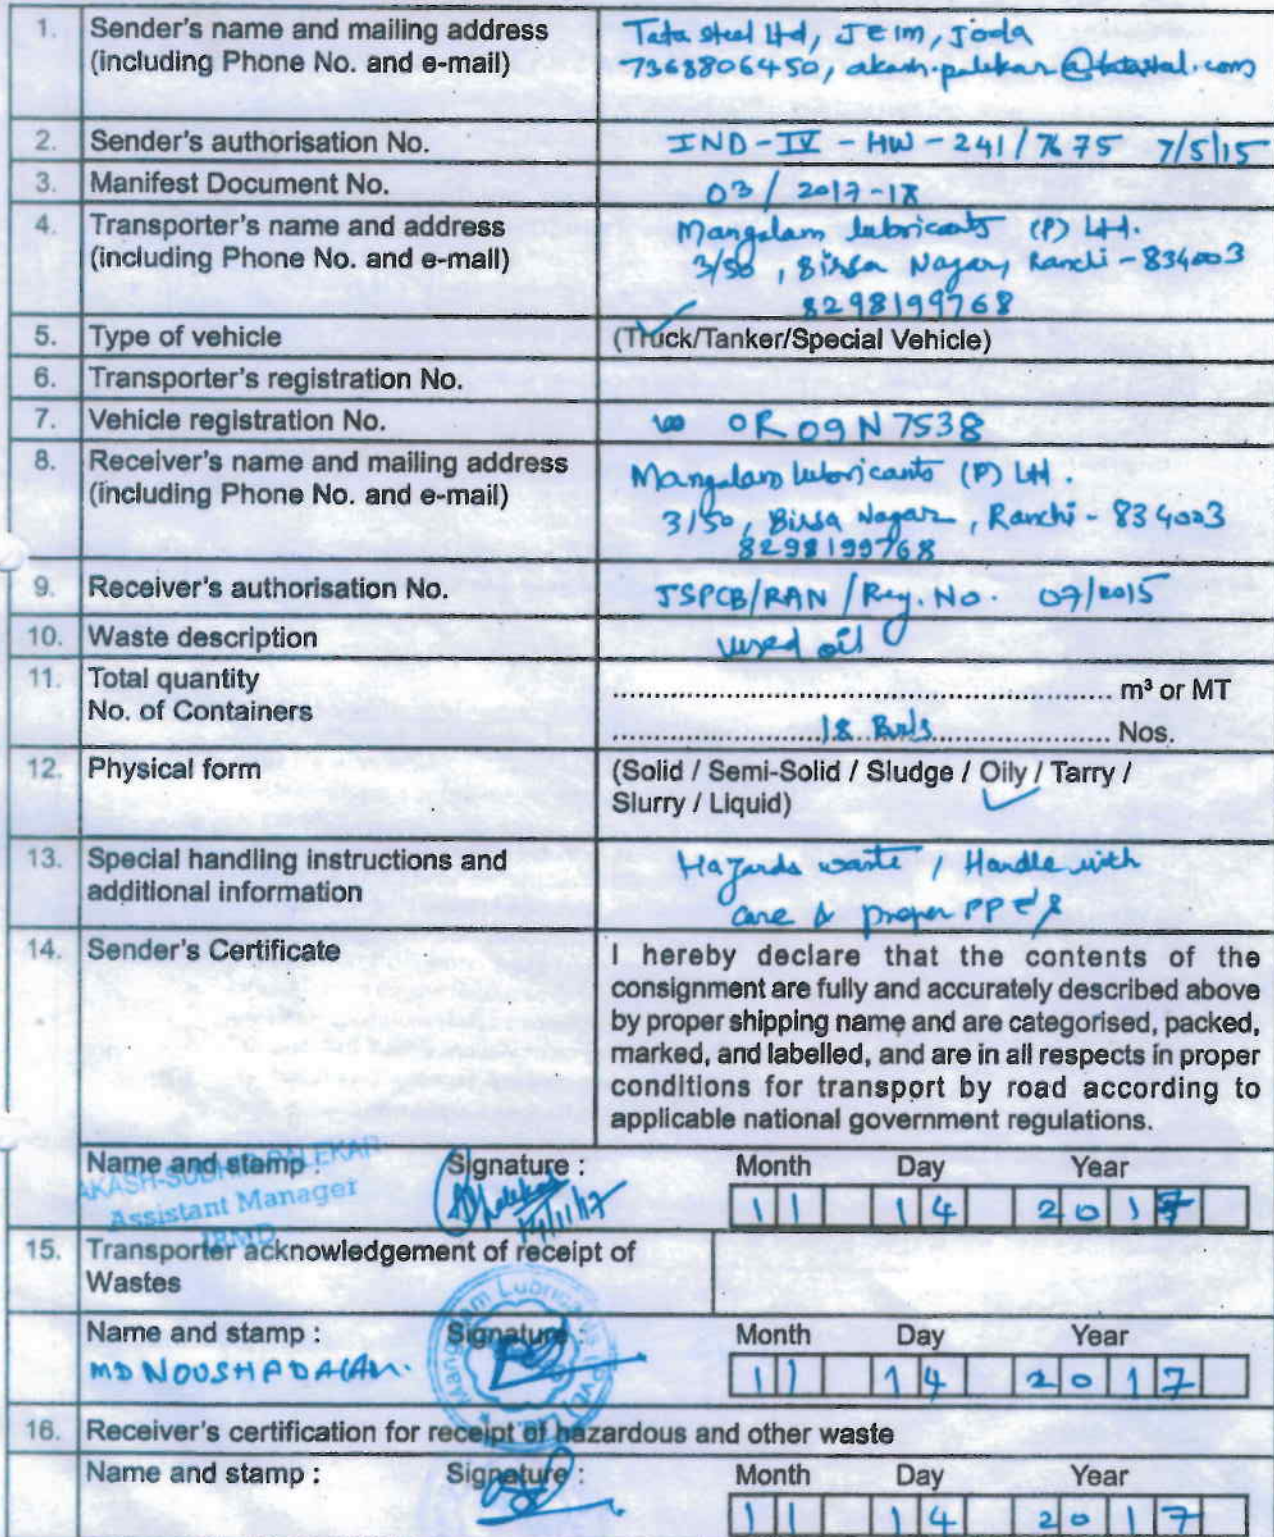 1. Sender's name and mailing address
(including Phone No. and e-mail)
Tata steel Ltd, JEIM, Joda
7368806450, akash.palekar@tatasteel.com
2. Sender's authorisation No. IND-IV-HW-241/7675 7/5/15
3. Manifest Document No. 03/2017-18
4. Transporter's name and address
(including Phone No. and e-mail)
Mangalam lubricants (P) Ltd.
3/50, Birsa Nagar, Ranchi-834003
8298199768
5. Type of vehicle (Truck/Tanker/Special Vehicle)
6. Transporter's registration No.
7. Vehicle registration No. OR09N7538
8. Receiver's name and mailing address
(including Phone No. and e-mail)
Mangalam lubricants (P) Ltd.
3/50, Birsa Nagar, Ranchi-834003
8298199768
9. Receiver's authorisation No. JSPCB/RAN/Reg. No. 07/2015
10. Waste description used oil
11. Total quantity ........ m³ or MT
No. of Containers 18 Brls Nos.
12. Physical form (Solid / Semi-Solid / Sludge / Oily / Tarry /
Slurry / Liquid)
13. Special handling instructions and
additional information
Hazards waste, Handle with
care & proper PPE's
14. Sender's Certificate
I hereby declare that the contents of the
consignment are fully and accurately described above
by proper shipping name and are categorised, packed,
marked, and labelled, and are in all respects in proper
conditions for transport by road according to
applicable national government regulations.
Name and stamp : Signature : Month Day Year
AKASH-SUDHIR PALEKAR
Assistant Manager
IRMD
14/11/17
11 14 2017
15. Transporter acknowledgement of receipt of
Wastes
Name and stamp : Signature : Month Day Year
MD NOUSHADALAM. 11 14 2017
Mangalam Lubricants
16. Receiver's certification for receipt of hazardous and other waste
Name and stamp : Signature : Month Day Year
11 14 2017